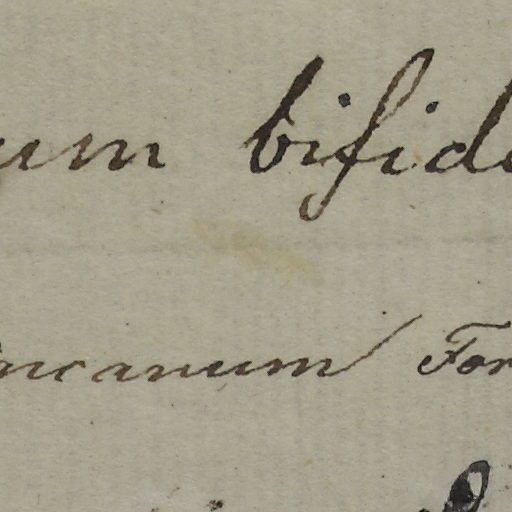 um bifid
ricanum For